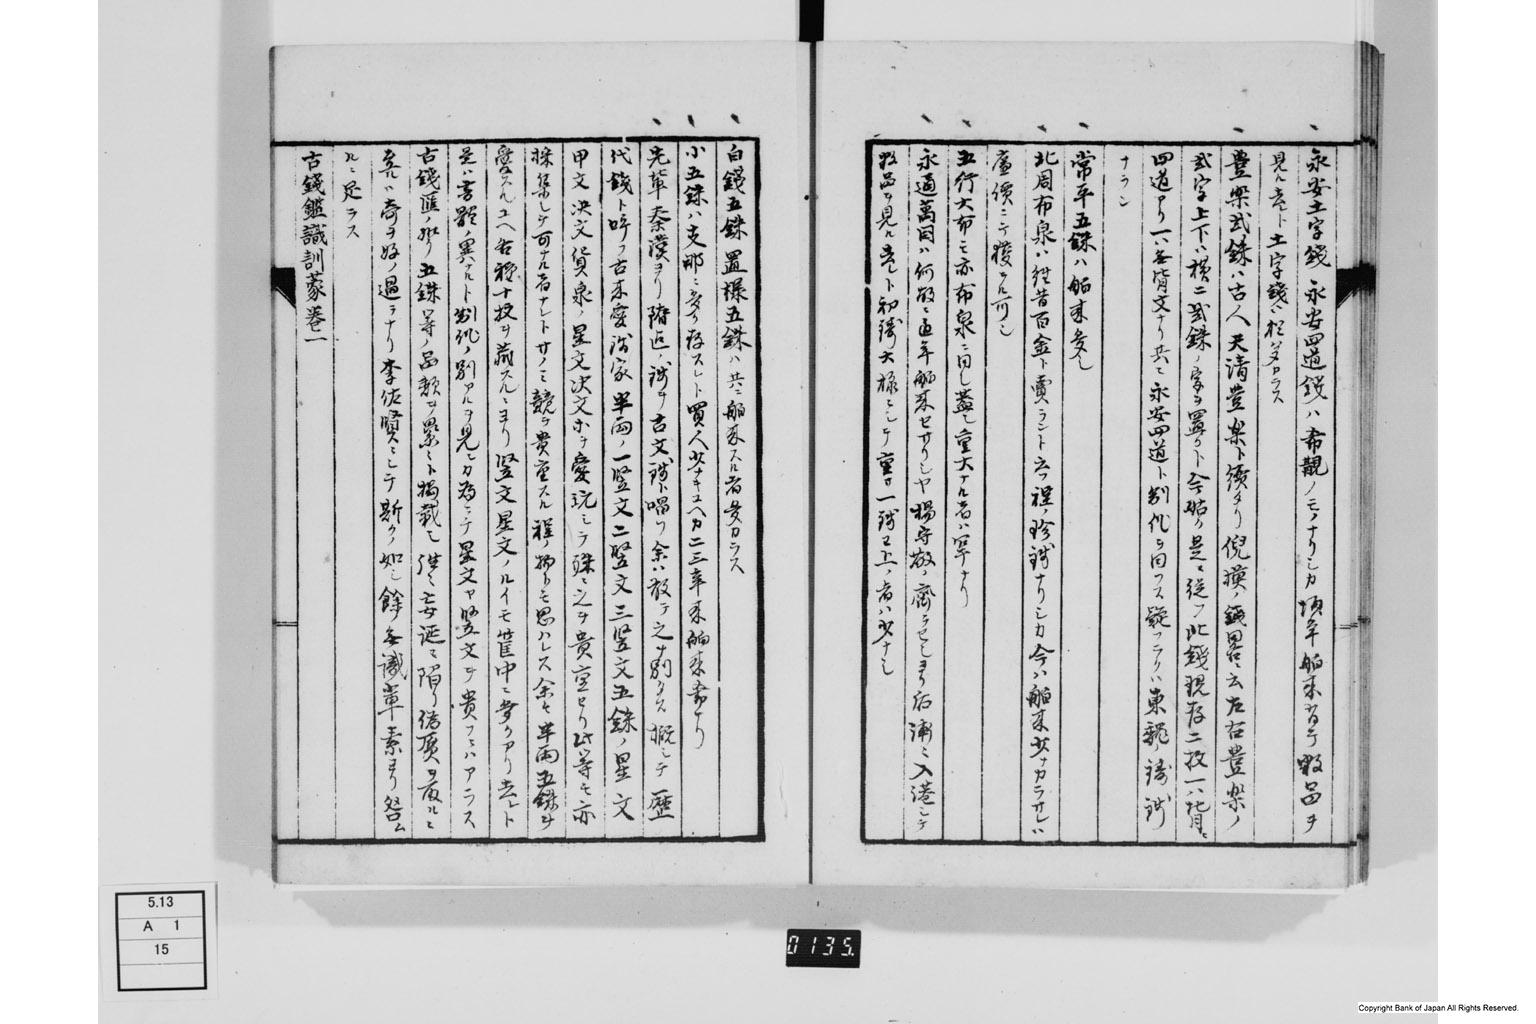 永安土字錢 永安四道錢ハ希覯ノモノナリシカ頃年舶来有テ数品ヲ
見ル去レト土字錢ハ拒メカラス
豊楽弐銖ハ古人天清豊楽ト續タリ倪模ノ錢畧ニ云左右豊楽ノ
弐字上下ハ横ニ弐銖ノ字ヲ置クト今姑ク是ニ従フ此錢現存二枚一ハ背ニ
四道アリ一ハ無背文ナリ共ニ永安四道ト制作ヲ同フス疑フラクハ東魏ノ鋳錢
ナラン
常平五銖ハ舶来多シ
北周布泉ハ往昔百金ト賣ラント云フ程ノ珍錢ナリシカ今ハ舶来少ナカラサレハ
廉價ニテ獲ラル可シ
五行大布モ亦布泉ニ同し蓋シ重大ナル者ハ罕ナリ
永通萬国ハ何故ニ近年舶来セサリシヤ楊守敬ノ齎ラセシヨリ后浦ニ入港シテ
数品ヲ見ル去レト初鋳大様ニシテ重サ一錢以上ノ者ハ少ナシ
白錢五銖 置様五銖ハ共ニ舶来スル者多カラス
小五銖ハ支那ニ多ク存スレト買人少ナキユヘカ二三年来舶来希ナリ
先輩秦漢ヨリ隋迄ノ錢ヲ古文錢ト唱フ余ハ敢テ之ヲ別タス概シテ歴
代錢ト呼フ古来愛錢家半両ノ一竪文二竪文三竪文五銖ノ星文
甲文决文貨泉ノ星文决文ホヲ愛玩シテ殊ニ之ヲ貴重セリ此等モ亦
採集シテ可ナル者ナレトサノミ競テ貴重スル程ノ物トモ思ハレス余モ半両五銖ヲ
愛スルユヘ各種十枚ヲ蔵スルニヨリ竪文星文ノルイモ筐中ニ多クアリ去レト
是ハ書躰ノ異ナルト制作ノ別アルヲ見ンカ為ニテ星文ヤ竪文ヲ貴フニハアラス
古錢匯ノ如ク五銖等ノ品類ヲ累々ト掲載シ
ハ奇ヲ好ノ過ナリ李佐賢ニシテ斯クノ如シ餘ノ無識輩素ヨリ咎ム
ルニ足ラス
古錢鑑識訓蒙巻一
5.13
A 1
15
0135.
Copyright Bank of Japan All Rights Reserved.